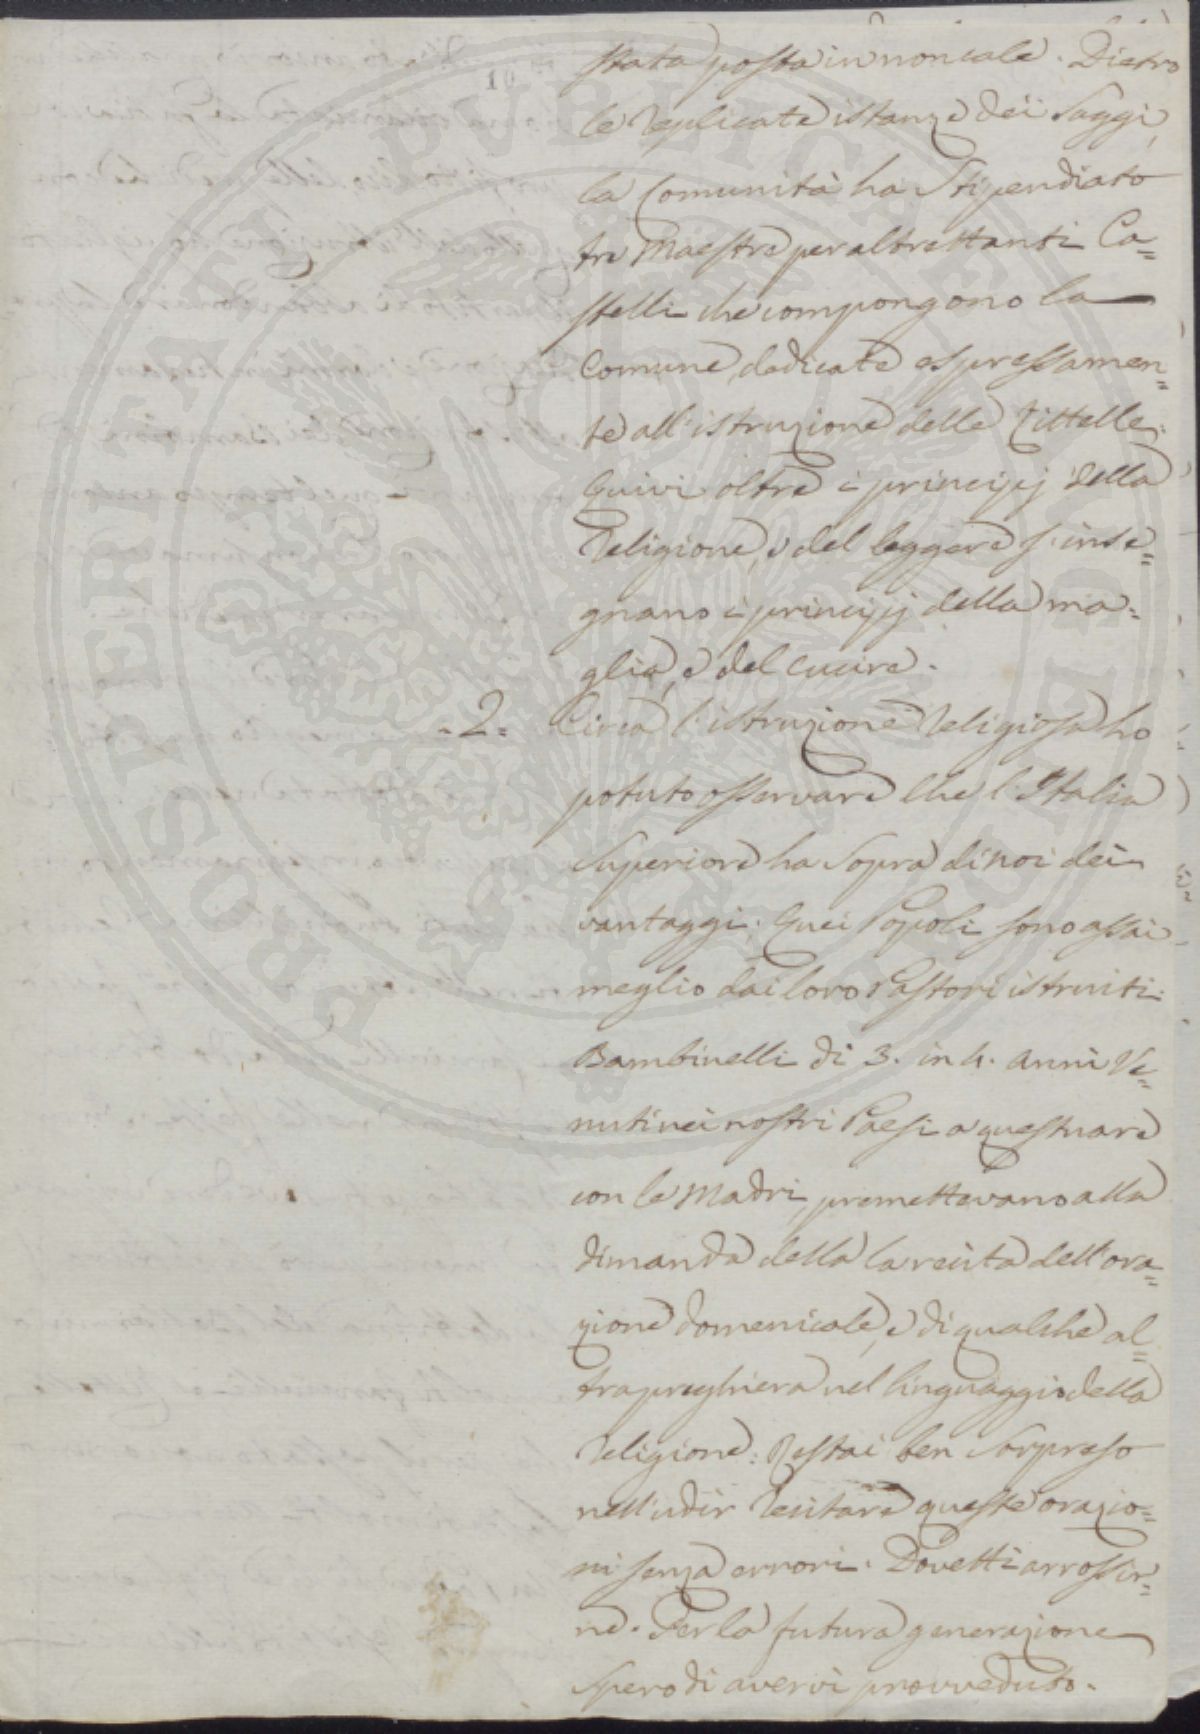 10
stata posta in non cale. Dietro
le replicate istanze dei Saggi,
la Comunità ha stipendiato
tre Maestre per altrettanti Ca=
stelli che compongono la
Comune, dedicate espressamen=
te all'istruzione delle Zittelle.
Quivi oltre i principj della
Religione, e del leggere s'inse=
gnano i principj della ma=
glia, e del cucire.
-2- Circa l'istruzione Religiosa ho
potuto osservare che l'Italia
Superiore ha sopra di noi dei
vantaggi. Quei Popoli sono assai
meglio dai loro Pastori istruiti.
Bambinelli di 3. in 4. anni Ve=
nuti nei nostri Paesi a questuare
con le Madri, premettevano alla
dimanda della la recita dell'ora=
zione domenicale, e di qualche al=
tra preghiera nel linguaggio della
Religione. Restai ben sorpreso
nell'udir recitare queste orazio=
ni senza errori. Dovetti arrossir=
ne. Per la futura generazione
spero di avervi provveduto.
PROSPERITATI PUBLICAE